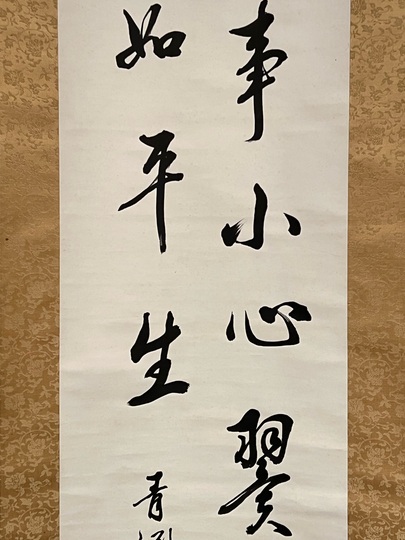 事小心翼
如平生
青